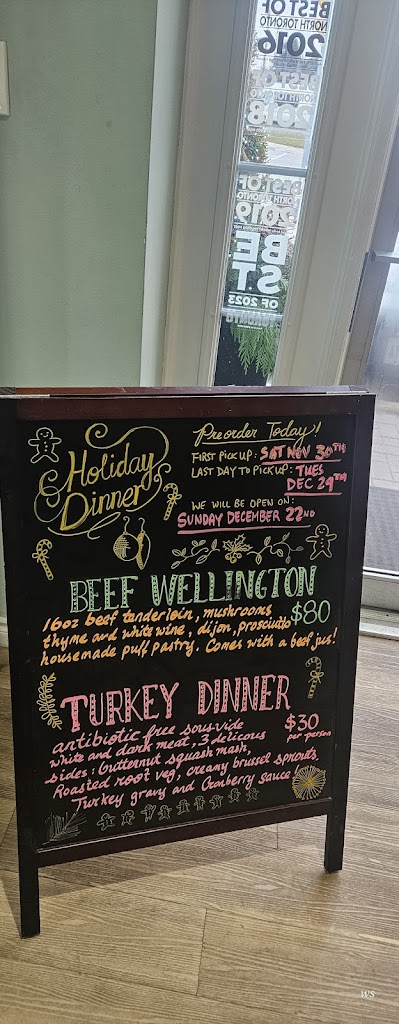 BEST OF
NORTH TORONTO
2016
BEST OF
NORTH TORONTO
2018
BEST OF
NORTH TORONTO
2019
BEST
OF 2023
TORONTO
Holiday
Dinner
Preorder Today!
FIRST PICK UP: SAT NOV 30TH
LAST DAY TO PICK UP: TUES
DEC 29TH
WE WILL BE OPEN ON:
SUNDAY DECEMBER 22ND
BEEF WELLINGTON
16oz beef tenderloin, mushrooms $80
thyme and white wine, dijon, prosciutto
housemade puff pastry. Comes with a beef jus!
TURKEY DINNER
antibiotic free sous-vide $30
white and dark meat, 3 delicous per person
sides: butternut squash mash,
Roasted root veg, creamy brussel sprouts,
Turkey gravy and Cranberry sauce
WS